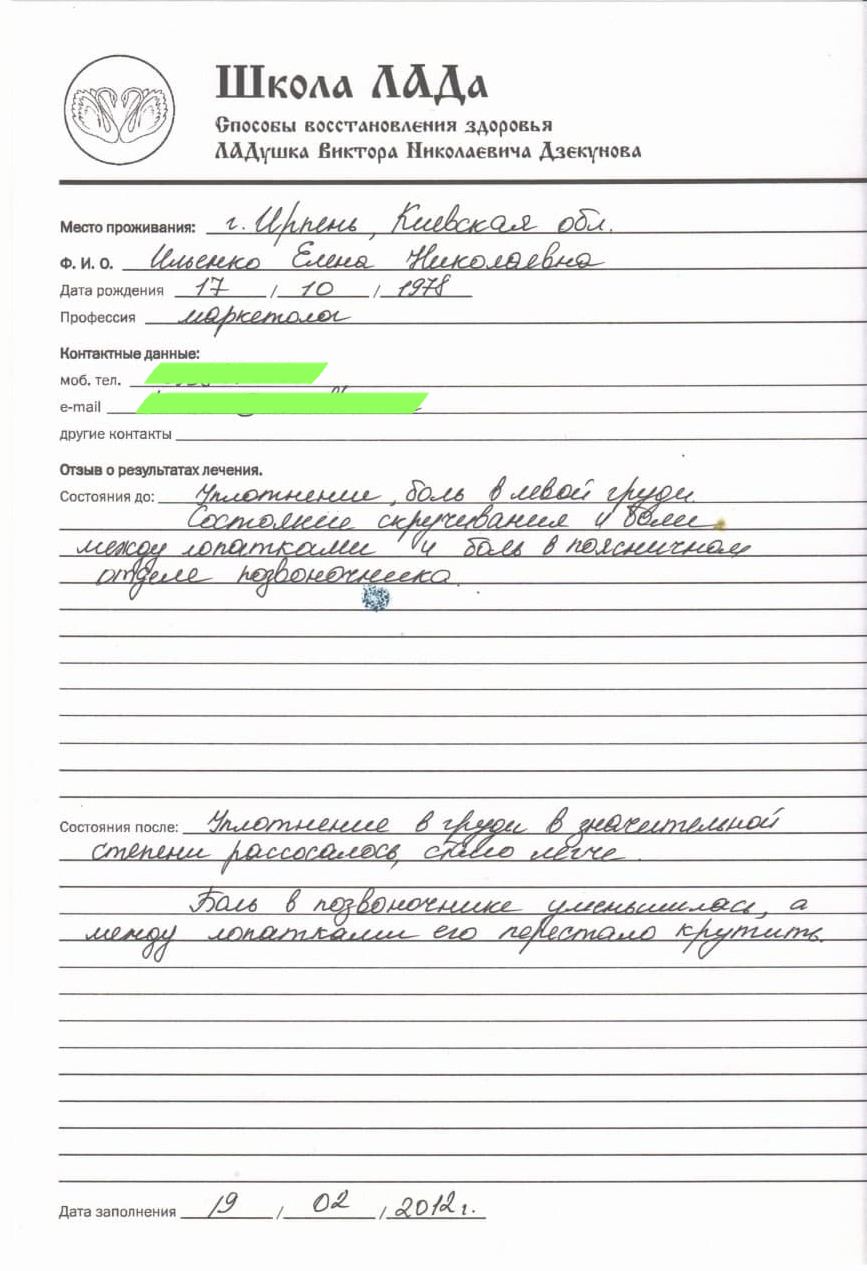 Школа ЛАДа
Способы восстановления здоровья
ЛАДушка Виктора Николаевича Дзекунова
Место проживания: г. Ирпень, Киевская обл.
Ф. И. О. Ильенко Елена Николаевна
Дата рождения 17 / 10 / 1978
Профессия маркетолог
Контактные данные:
моб. тел.
e-mail
другие контакты
Отзыв о результатах лечения.
Состояния до: Уплотнение, боль в левой груди
Состояние скручивания и боли
между лопатками и боль в поясничном
отделе позвоночника.
Состояния после: Уплотнение в груди в значительной
степени рассосалось, стало легче.
Боль в позвоночнике уменьшилась, а
между лопатками его перестало крутить.
Дата заполнения 19 / 02 / 2012 г.